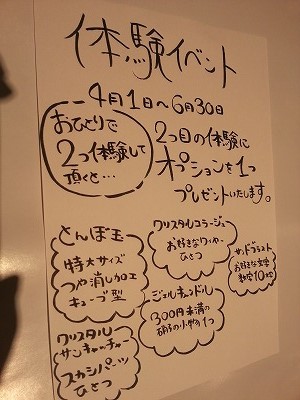 体験イベント
4月1日〜6月30日
おひとりで
2つ体験して
頂くと…
2つ目の体験に
オプションを1つ
プレゼントいたします。
とんぼ玉
特大サイズ
つや消し加工
キューブ型
クリスタルコラージュ
お好きなワイヤー
ひとつ
サンドブラスト
お好きな文字
数字10文字
ジェルキャンドル
300円未満の
硝子の小物1つ
クリスタル
サンキャッチャー
スカシパーツ
ひとつ